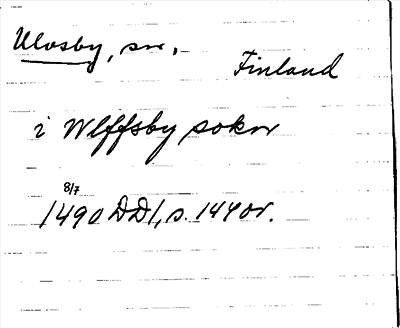 Ulvsby, sn.
Finland
i Wlffsby sokn
8/7
1490 DD1, s. 144 or.